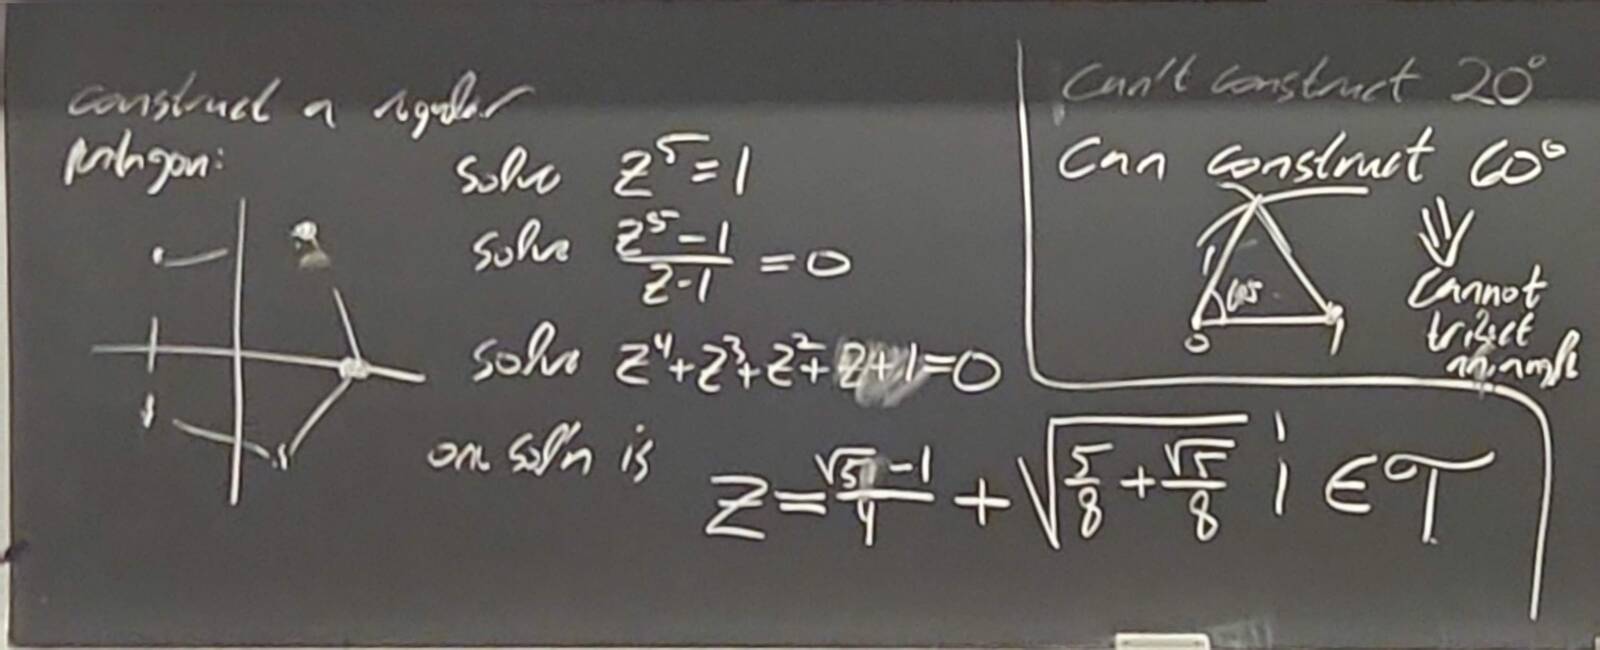 construct a regular
pentagon:
solve z⁵=1
solve (z⁵-1)/(z-1) = 0
solve z⁴+z³+z²+z+1=0
one sol'n is
z = (√5 -1)/4 + √(5/8 + √5/8) i ∈ T
Can't construct 20°
Can construct 60°
⇓
Cannot
trisect
an angle
1
0 1